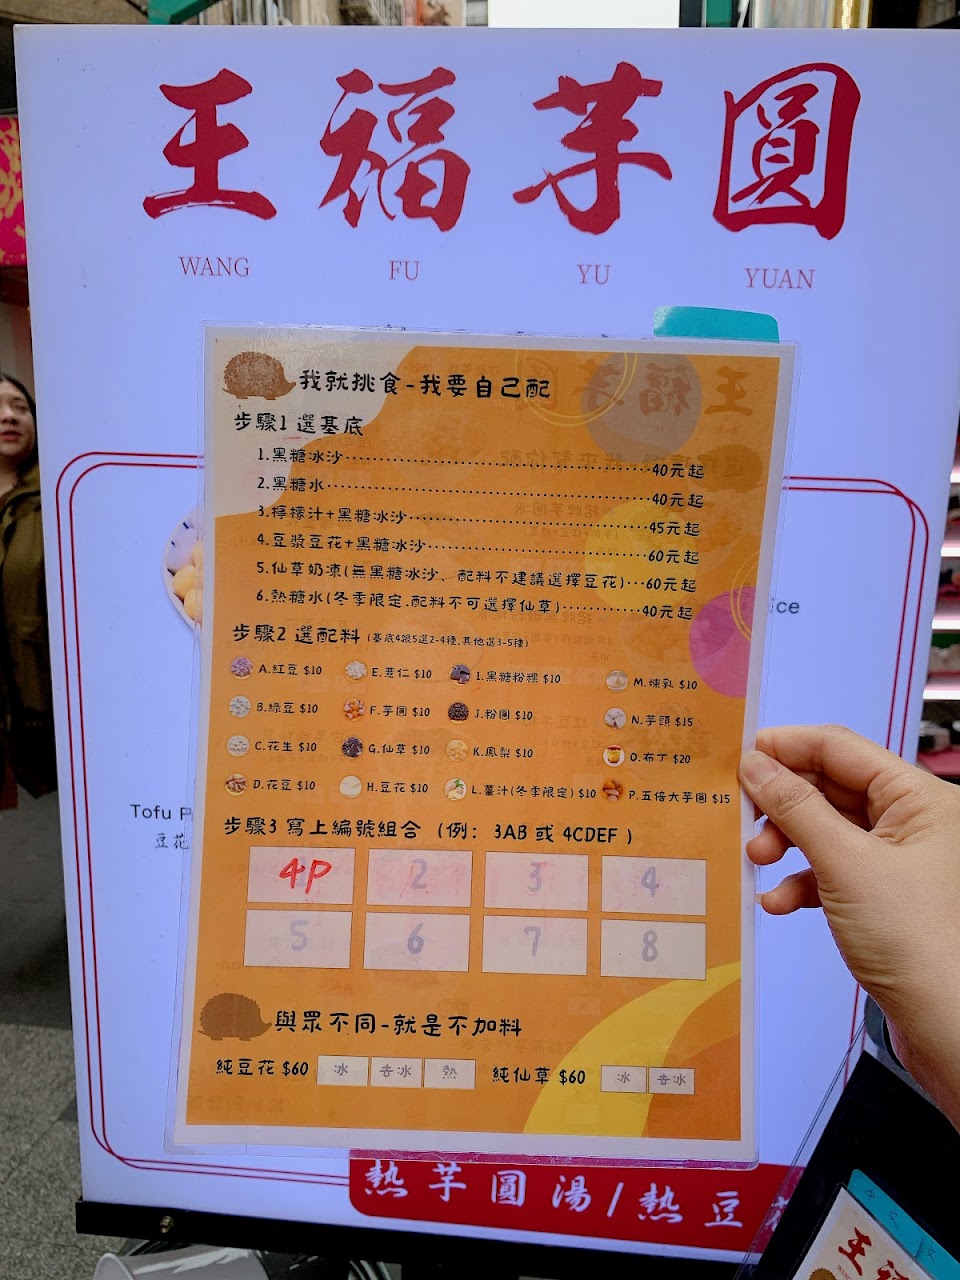 王福芋圓
WANG FU YU YUAN
我就挑食-我要自己配
步驟1 選基底
1.黑糖冰沙………40元起
2.黑糖水………40元起
3.檸檬汁+黑糖冰沙………45元起
4.豆漿豆花+黑糖冰沙………60元起
5.仙草奶凍(無黑糖冰沙、配料不建議選擇豆花)…60元起
6.熱糖水(冬季限定.配料不可選擇仙草)………40元起
步驟2 選配料 (基底4跟5選2-4種,其他選3-5種)
A.紅豆 $10 E.薏仁 $10 I.黑糖粉粿 $10 M.煉乳 $10
B.綠豆 $10 F.芋圓 $10 J.粉圓 $10 N.芋頭 $15
C.花生 $10 G.仙草 $10 K.鳳梨 $10 O.布丁 $20
D.花豆 $10 H.豆花 $10 L.薑汁(冬季限定) $10 P.五倍大芋圓 $15
步驟3 寫上編號組合 (例: 3AB 或 4CDEF )
4P 2 3 4
5 6 7 8
與眾不同-就是不加料
純豆花 $60 冰 去冰 熱 純仙草 $60 冰 去冰
Tofu
豆花
ice
熱芋圓湯/熱豆
中文
王福